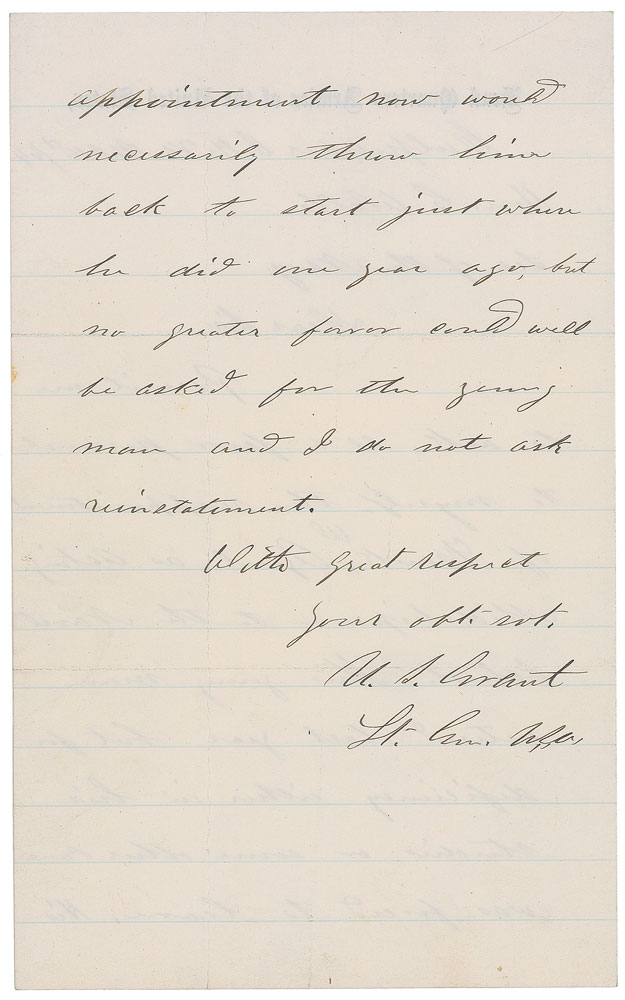 appointment now would
necessarily throw him
back to start just where
he did one year ago, but
no greater favor could well
be asked for the young
man and I do not ask
reinstatement.
With great respect
your obt. svt.
U. S. Grant
Lt. Gen. USA